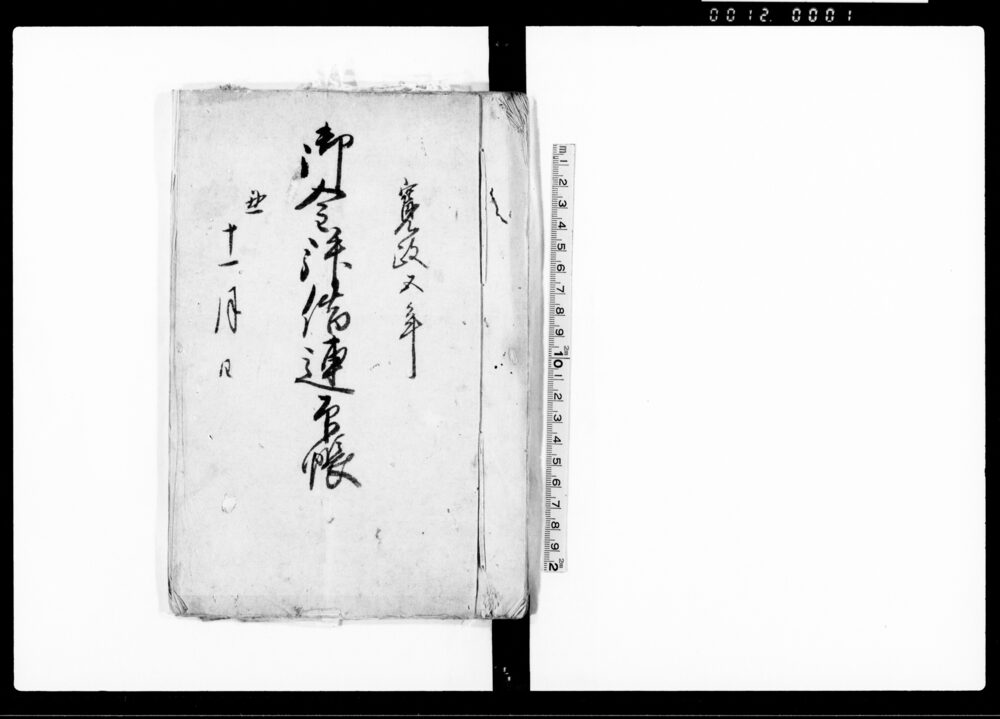 0012. 0001
寛政五年
御金拝借連印帳
丑
十一月日
m 1 2 3 4 5 6 7 8 9 10 1 2 3 4 5 6 7 8 9 2